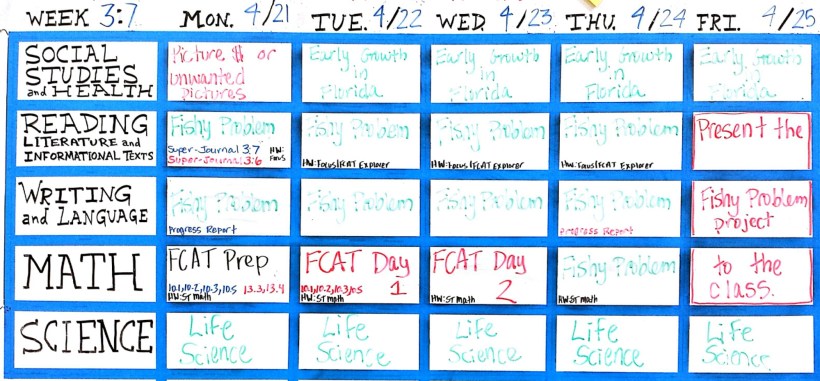 WEEK 3:7 MON. 4/21 TUE. 4/22 WED 4/23 THU. 4/24 FRI. 4/25
SOCIAL
STUDIES
and HEALTH
Picture $ or
unwanted
pictures
Early Growth
in
Florida
Early Growth
in
Florida
Early Growth
in
Florida
Early Growth
in
Florida
READING
LITERATURE and
INFORMATIONAL TEXTS
Fishy Problem
Super-Journal 3:7
Super-Journal 3:6
HW:
Focus
Fishy Problem
HW: Focus/FCAT Explorer
Fishy Problem
HW: Focus/FCAT Explorer
Fishy Problem
HW: Focus/FCAT Explorer
Present the
WRITING
and LANGUAGE
Fishy Problem
Progress Report
Fishy Problem
Fishy Problem
Fishy Problem
Progress Report
Fishy Problem
project
MATH
FCAT Prep
10.1, 10.2, 10.3, 10.5 13.3, 13.4
HW: ST math
FCAT Day
1
10.1, 10.2, 10.3, 10.5
HW: ST math
FCAT Day
2
HW: ST math
Fishy Problem
HW: ST math
to the
class.
SCIENCE
Life
Science
Life
Science
Life
Science
Life
Science
Life
Science